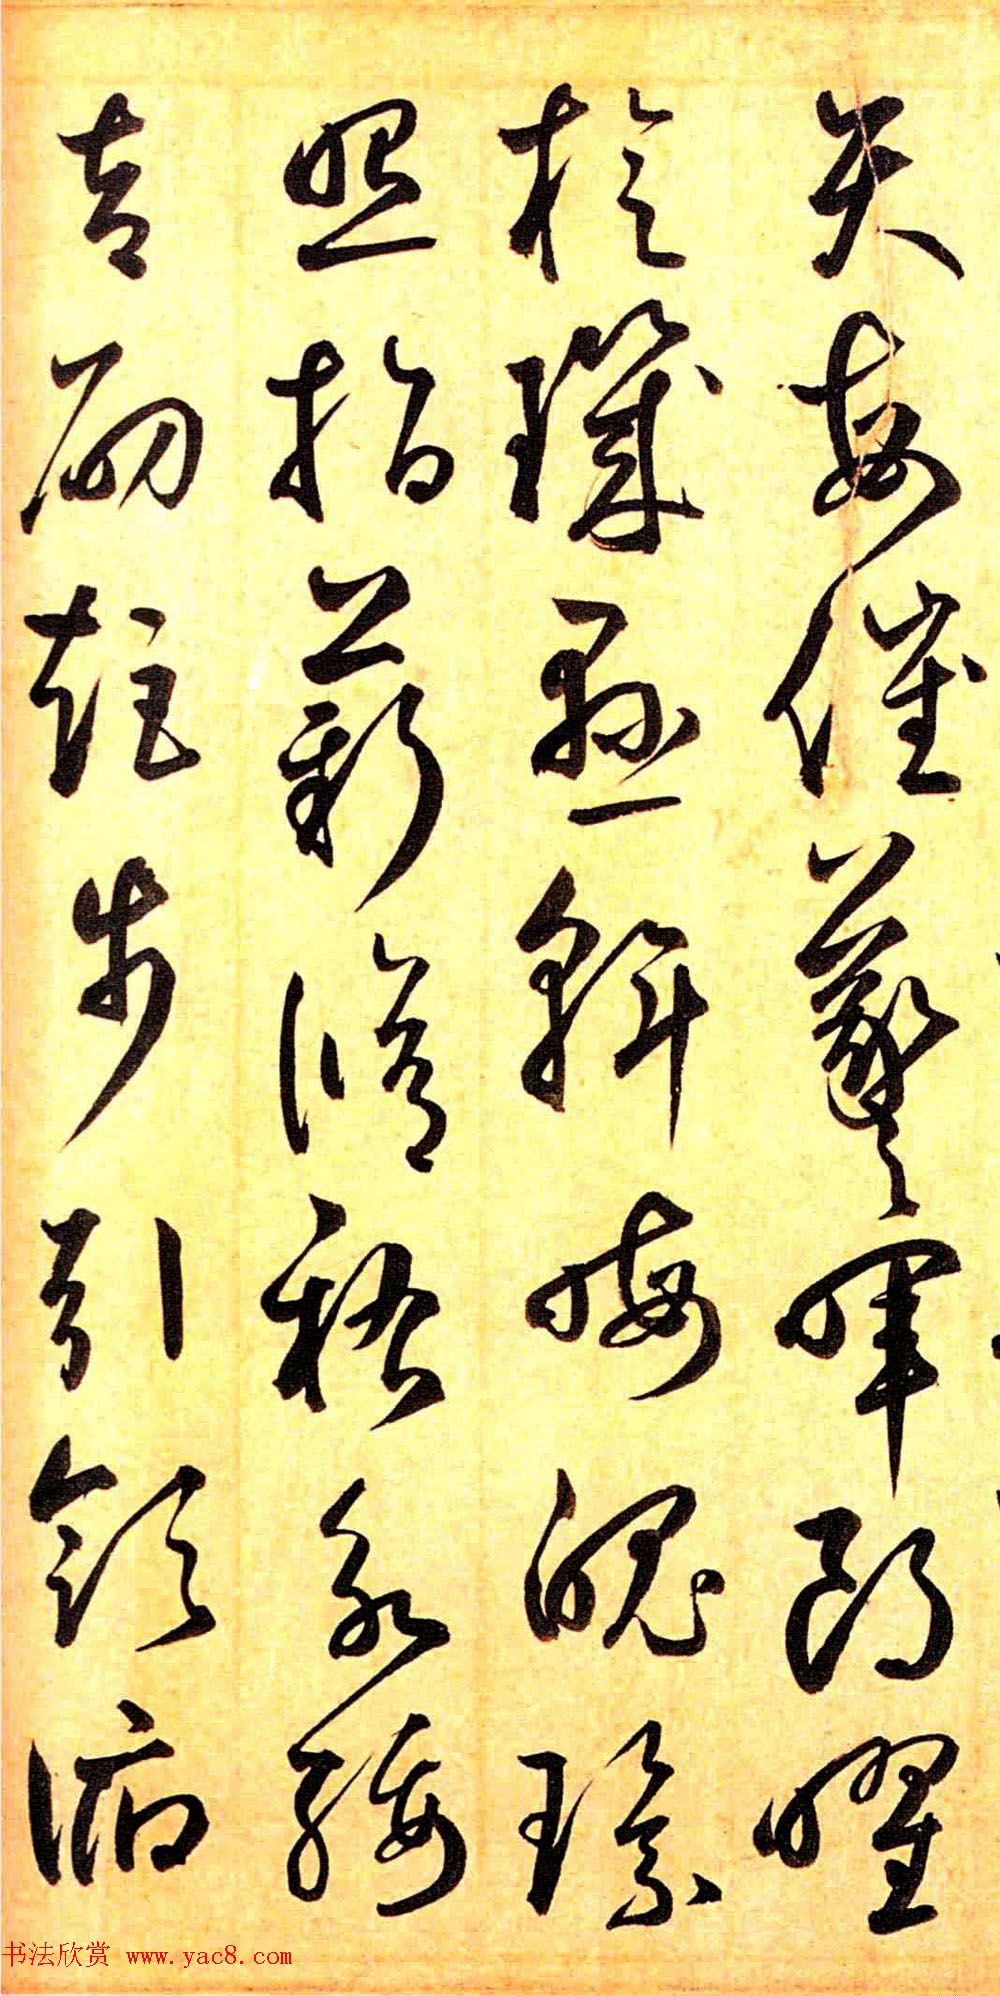 矢每催羲晖朗曜
旋玑悬斡晦魄环
照指薪修祜永绥
吉劭矩步引领俯
书法欣赏 www.yac8.com